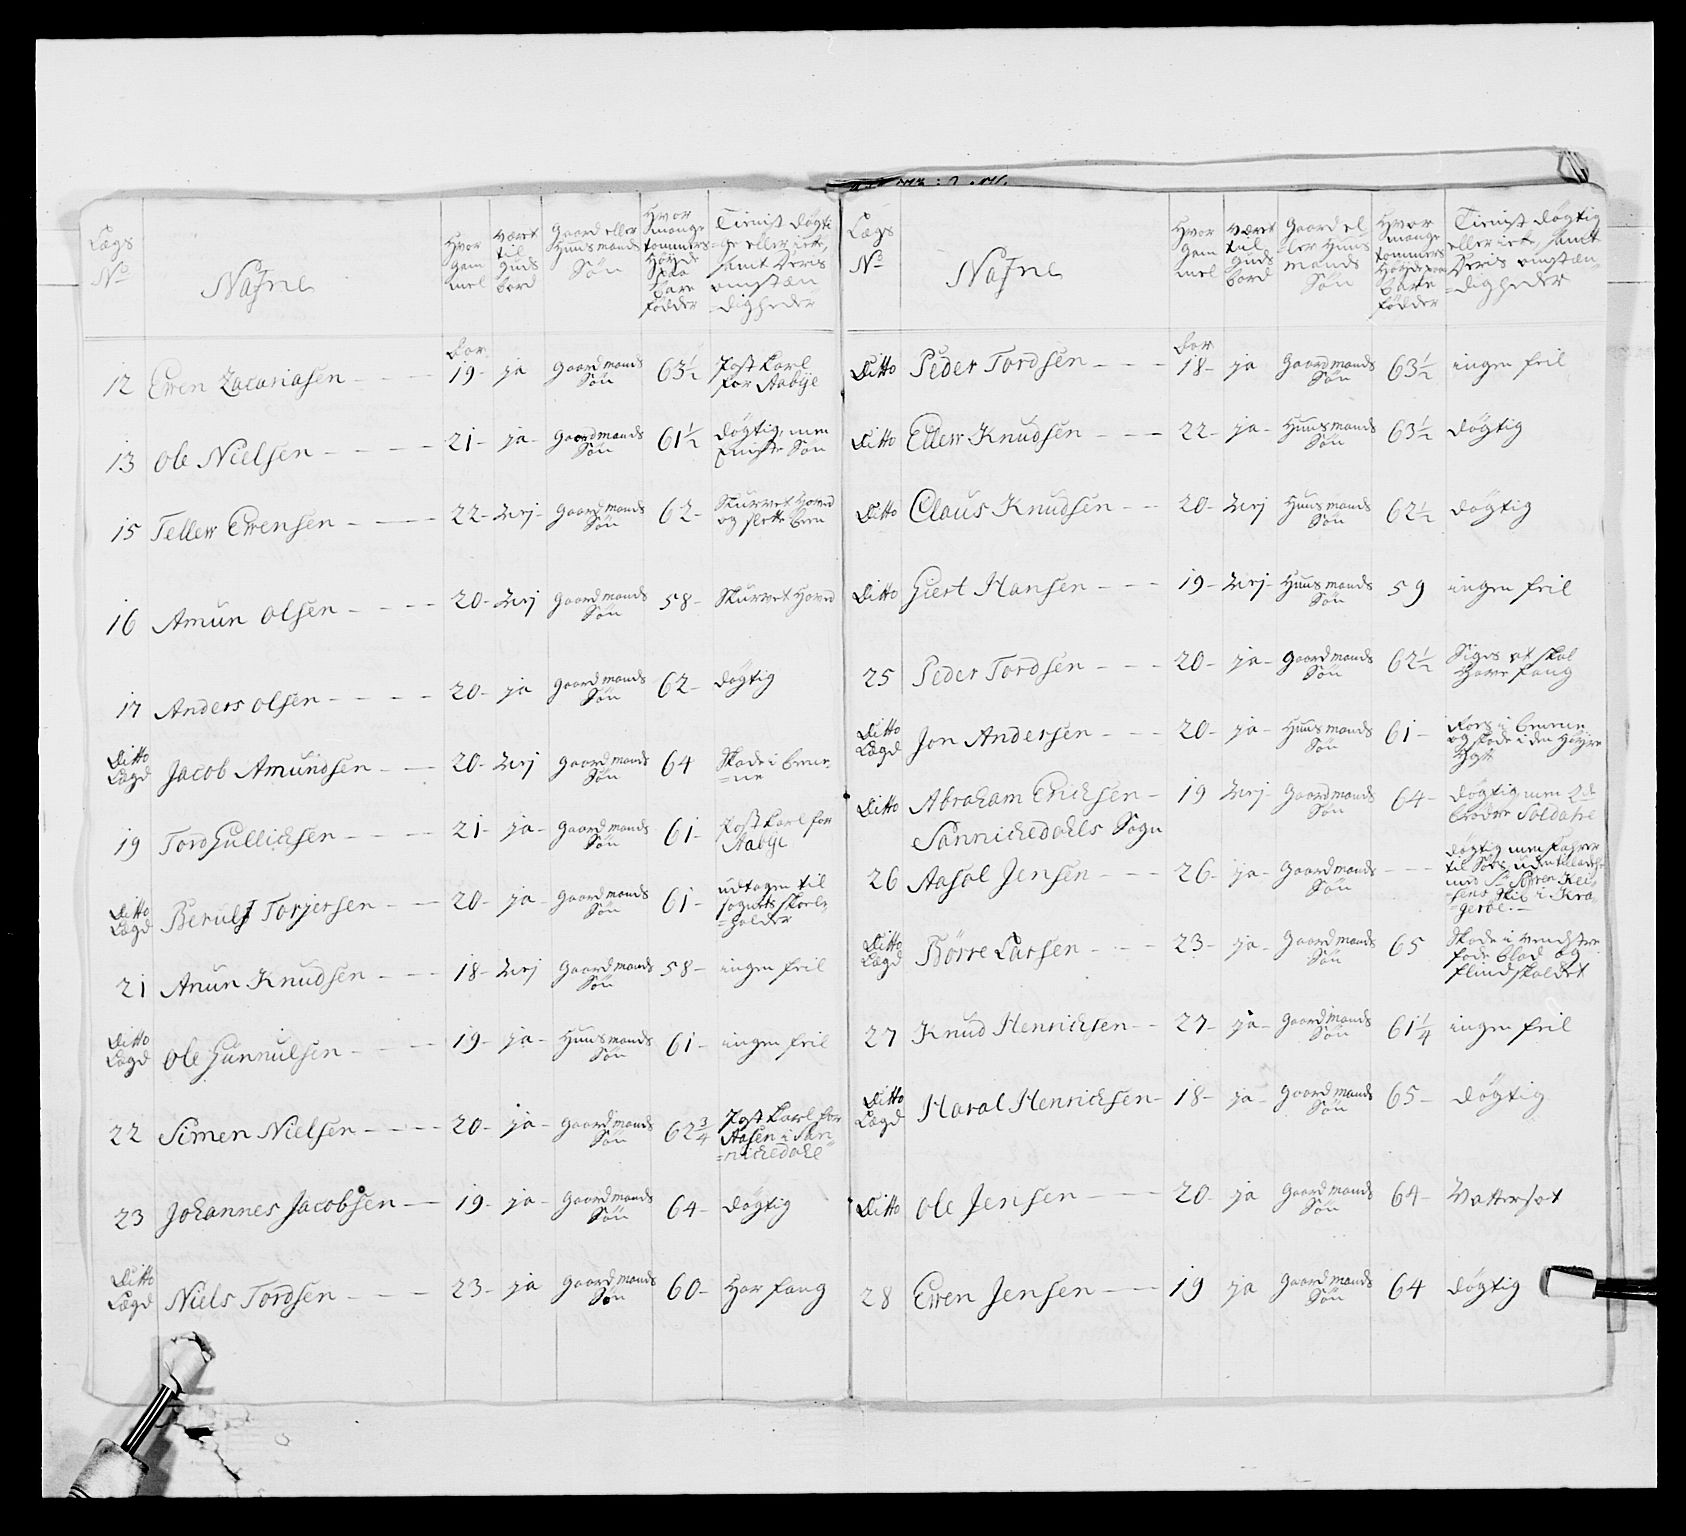 Lægs No
Nafne
Hvor Gammel
været til Guds bord
Gaard eller Huusmands Søn
Hvor mange tommers Høyde paa bare fødder
Tienist døgtige eller icke, samt Deris omstændigheder
12 Ewen Zacariasen 19 ja Gaardmands Søn 63 1/2 Postkarl for Aabye
13 Ole Nielsen 21 ja Gaardmands Søn 61 1/2 døgtig, men Søn
15 Tellew Ewensen 22 Nej Gaardmands Søn 62 Skurvet Hoved og
16 Amun Olsen 20 Nej Gaardmands Søn 58 Skurvet Hoved
17 Anders Olsen 20 ja Gaardmands Søn 62 døgtig
Ditto Lægd Jacob Amundsen 20 Nej Gaardmands Søn 64 Skade i benene
19 Tord Gullichsen 21 ja Gaardmands Søn 61 Postkarl for Aabye
Ditto Lægd Berulf Torjersen 20 ja Gaardmands Søn 61 udtagen til sognets skoelholder
21 Anun Knudsen 18 Nej Gaardmands Søn 58 ingen feil
Ditto Lægd Ole Gunnulsen 19 ja Huusmands Søn 61 ingen feil
22 Simen Nielsen 20 ja Gaardmands Søn 62 3/4 Postkarl for Aasen i Sannickedahl
23 Johannes Jacobsen 19 ja Gaardmands Søn 64 døgtig
Ditto Lægd Niels Tordsen 23 ja Gaardmands Søn 60 Har fang
Lægs No
Nafne
Hvor Gammel
været til Guds bord
Gaard eller Huusmands Søn
Hvor mange tommers Høyde paa bare fødder
Tienist døgtig eller icke, samt Deris omstændigheder
Ditto Peder Tordsen 18 ja Gaardmands Søn 63 1/2 ingen feil
Ditto Ellew Knudsen 22 ja Huusmands Søn 63 1/2 døgtig
Ditto Claus Knudsen 20 Nej Huusmands Søn 62 1/2 døgtig
Ditto Giert Hansen 19 Nej Huusmands Søn 59 ingen feil
25 Peder Tordsen 20 ja Gaardmands Søn 62 1/2 Siges at skal Have fang
Ditto Lægd Jon Andersen 20 ja Huusmands Søn 61 i benene og skade i den Høyre
Ditto Abraham Erichsen 19 Nej Gaardmands Søn 64 døgtig men 2de brødre Soldater
Sannickedahls Sogn
26 Aasol Jensen 26 ja Gaardmands Søn døgtig men farer til Søes uden tilladelse med Sr Søfren skib i Kragerøe
Ditto Lægd Börre Larsen 23 ja Gaardmands Søn 65 Skade i venstre fode blad og flindskaldet
27 Knud Henrichsen 27 ja Gaardmands Søn 61 1/4 ingen feil
Ditto Lægd Haral Henrichsen 18 ja Gaardmands Søn 65 døgtig
Ditto Ole Jensen 20 ja Gaardmands Søn 64 Vattersot
28 Ewen Jensen 19 ja Gaardmands Søn 64 døgtig